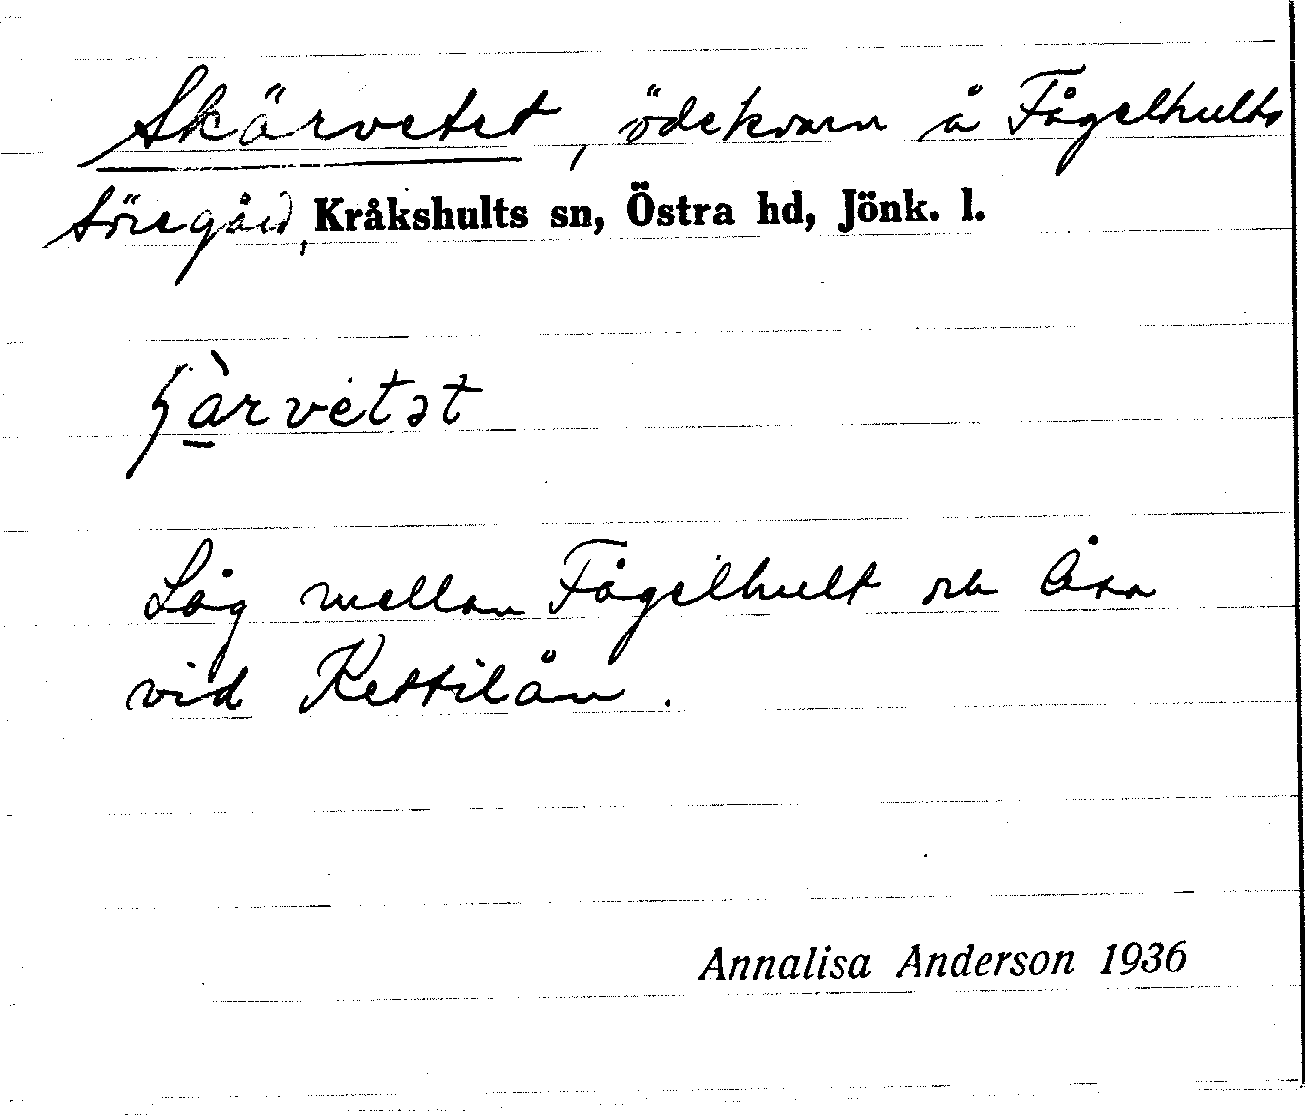 Skärvetet, ödekvarn å Fågelhults
söregård, Kråkshults sn, Östra hd, Jönk. l.
ʃàrvètət
Låg mellan Fågelhult och Åsa
vid Kettilån.
Annalisa Anderson 1936